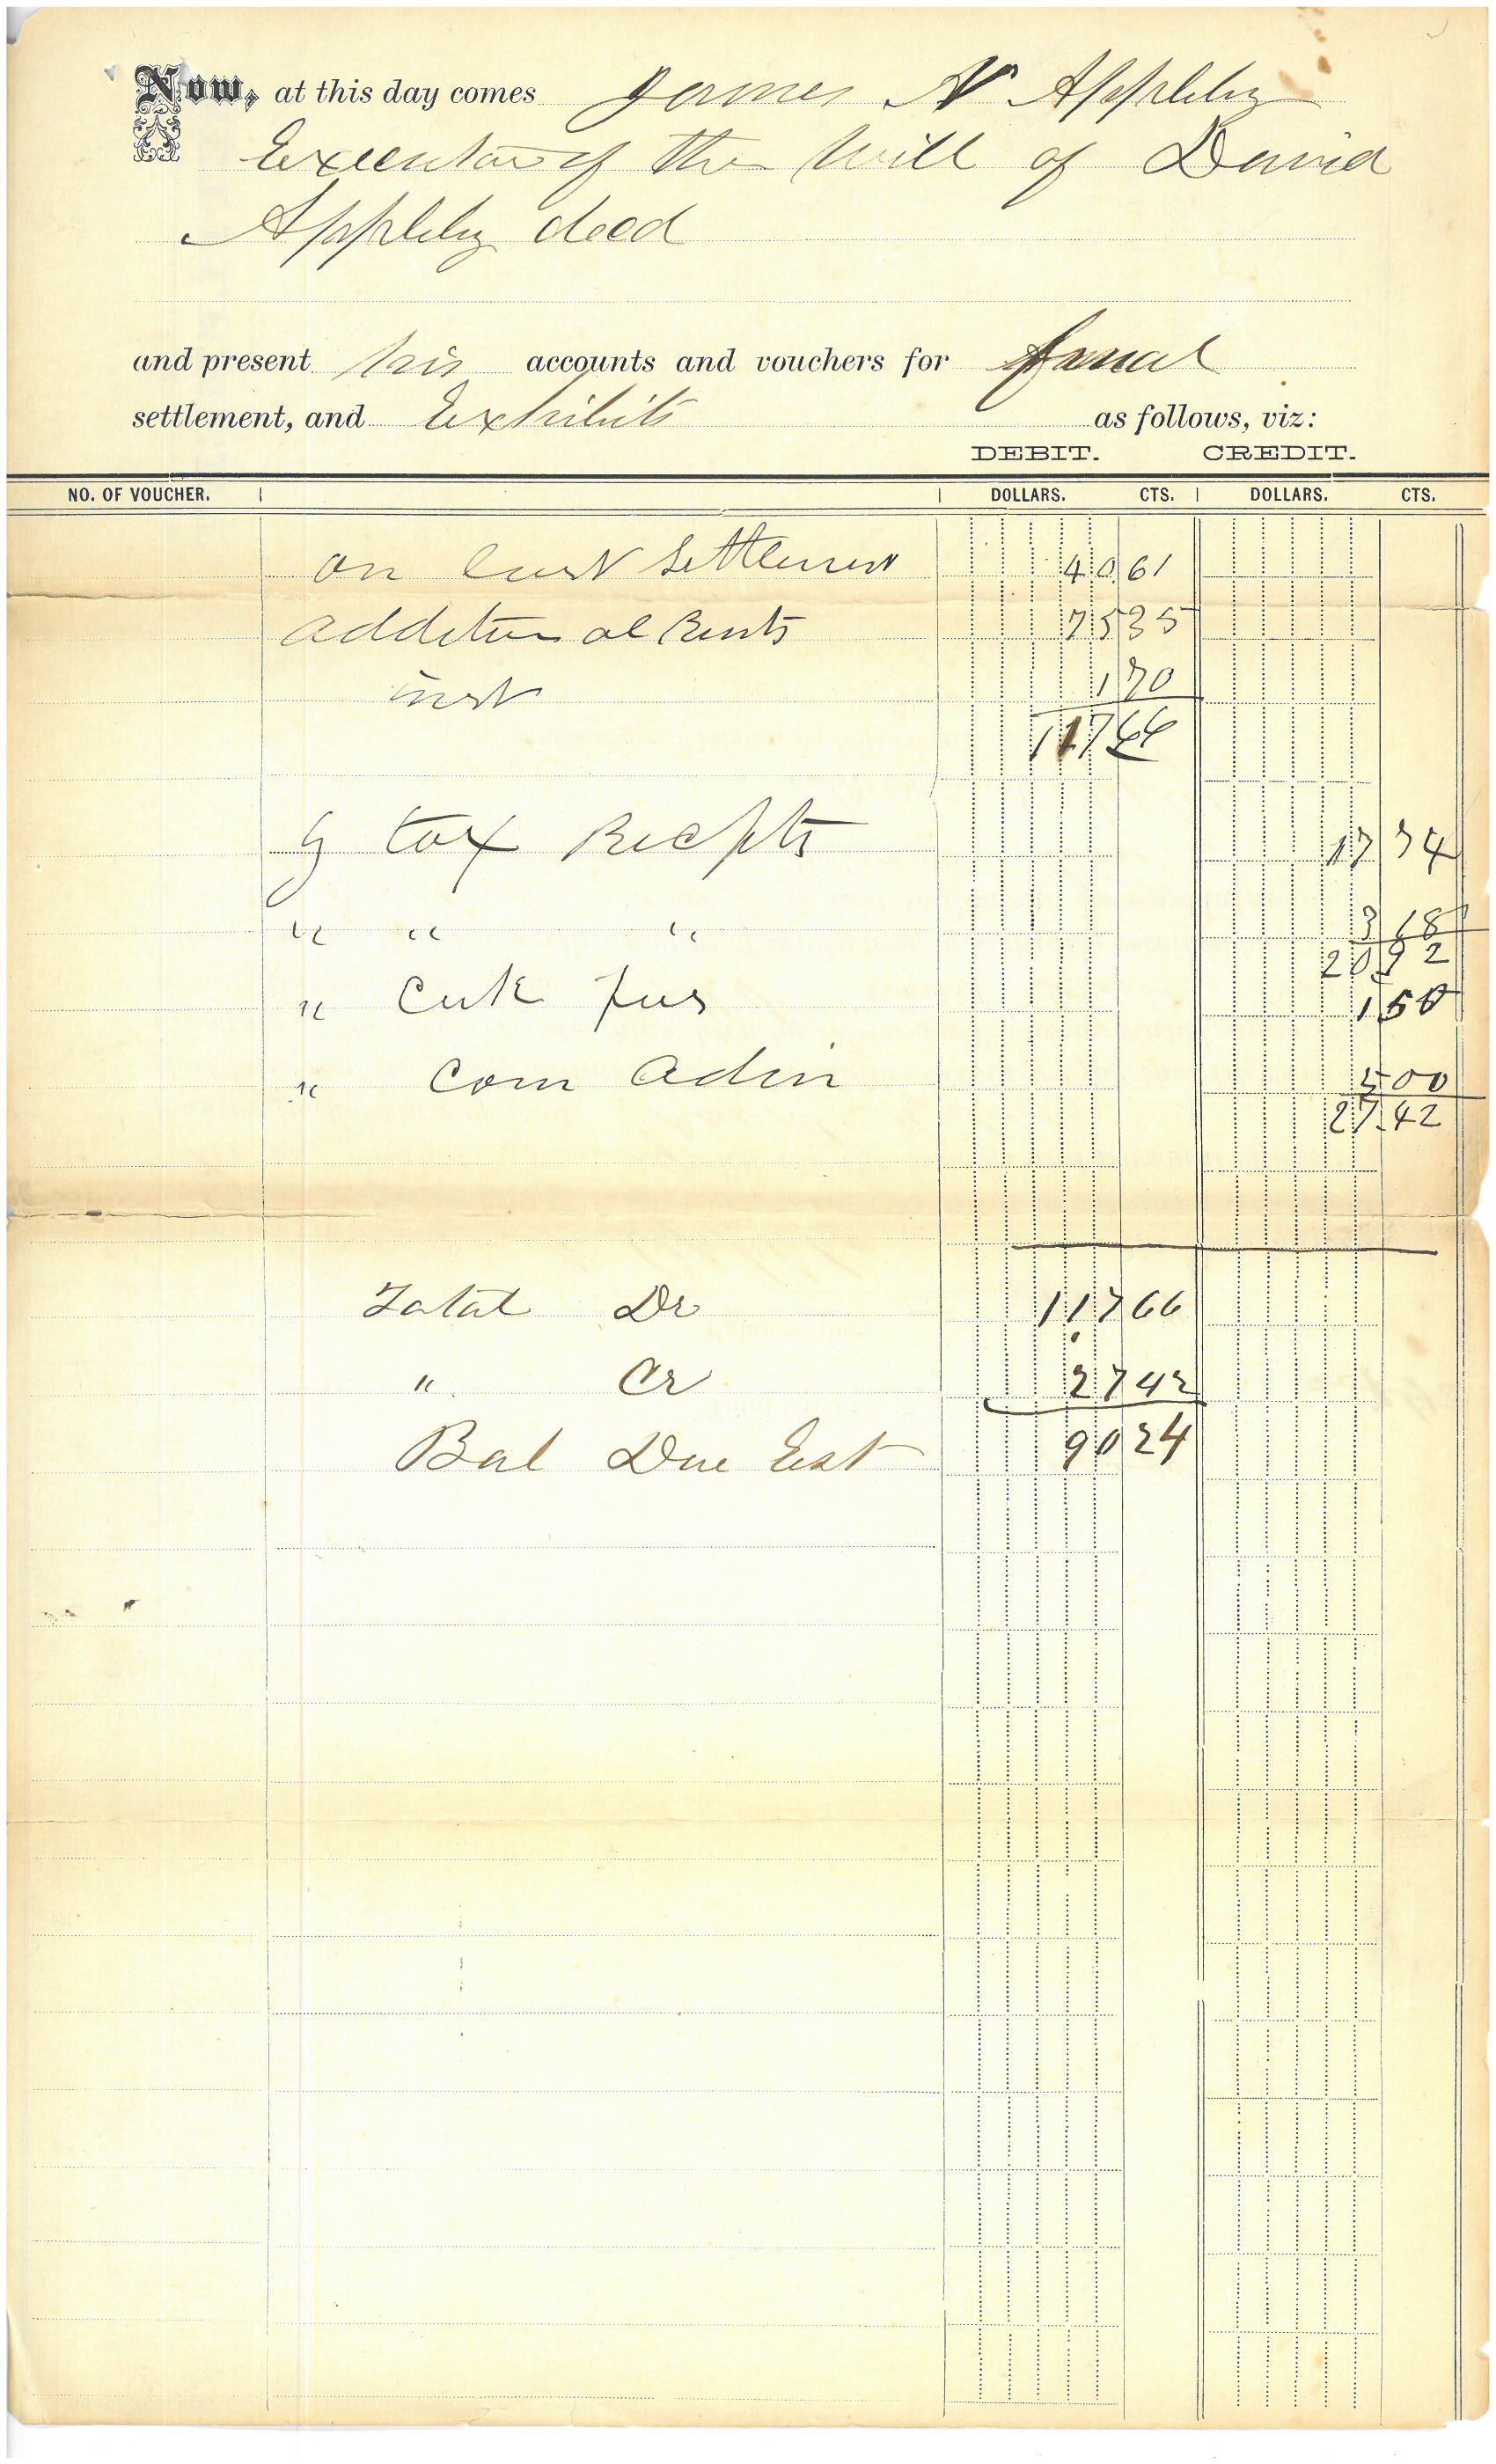 Now, at this day comes James N Appleby
Executor of the Will of David
Appleby decd
and present his accounts and vouchers for final
settlement, and Exhibits as follows, viz:
DEBIT. CREDIT.
NO. OF VOUCHER. DOLLARS. CTS. DOLLARS. CTS.
on last Settlement 40 61
additional Rents 75 35
inst 1 70
117 66
By tax Recpts 17 74
" " " 3 18
20 92
" Clk fees 1 50
" Com Adm 5 00
27.42
Total Dr 117 66
" Cr 27 42
Bal Due Est 90 24